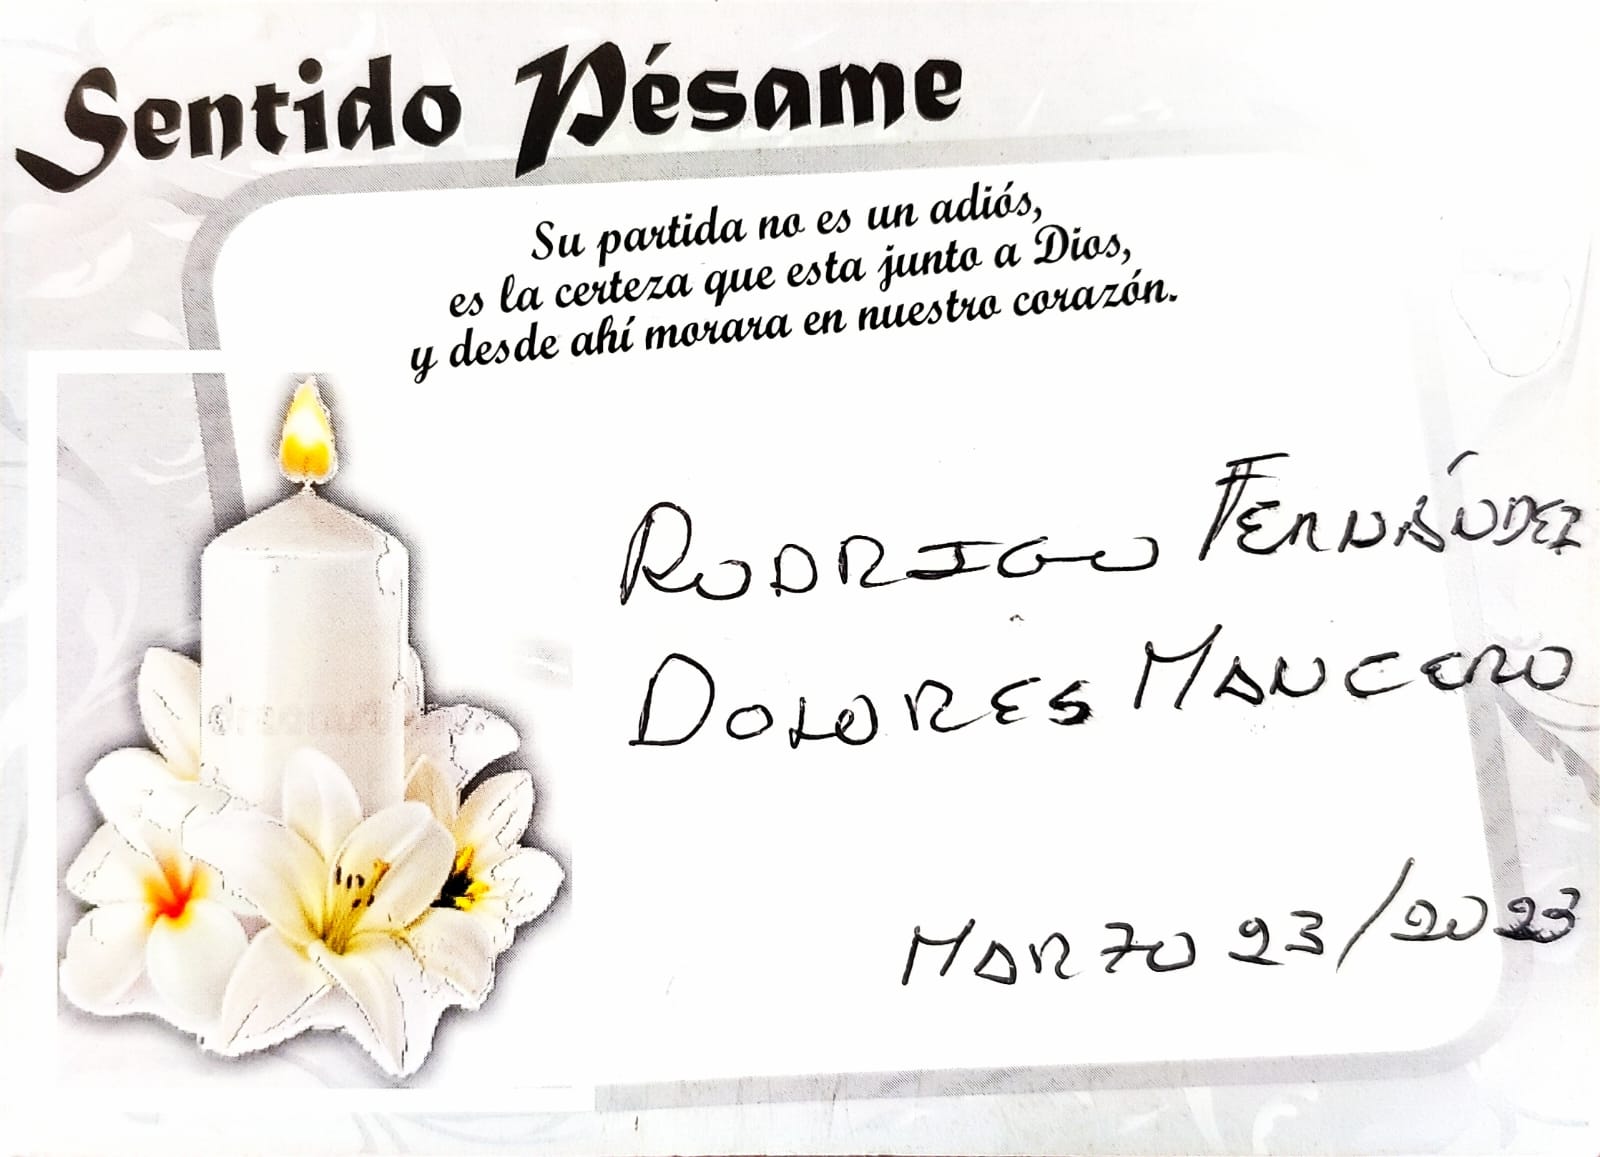 Sentido Pésame
Su partida no es un adiós,
es la certeza que esta junto a Dios,
y desde ahí morara en nuestro corazón.
RODRIGO FERNÁNDEZ
DOLORES MANCERO
MARZO 23/2023